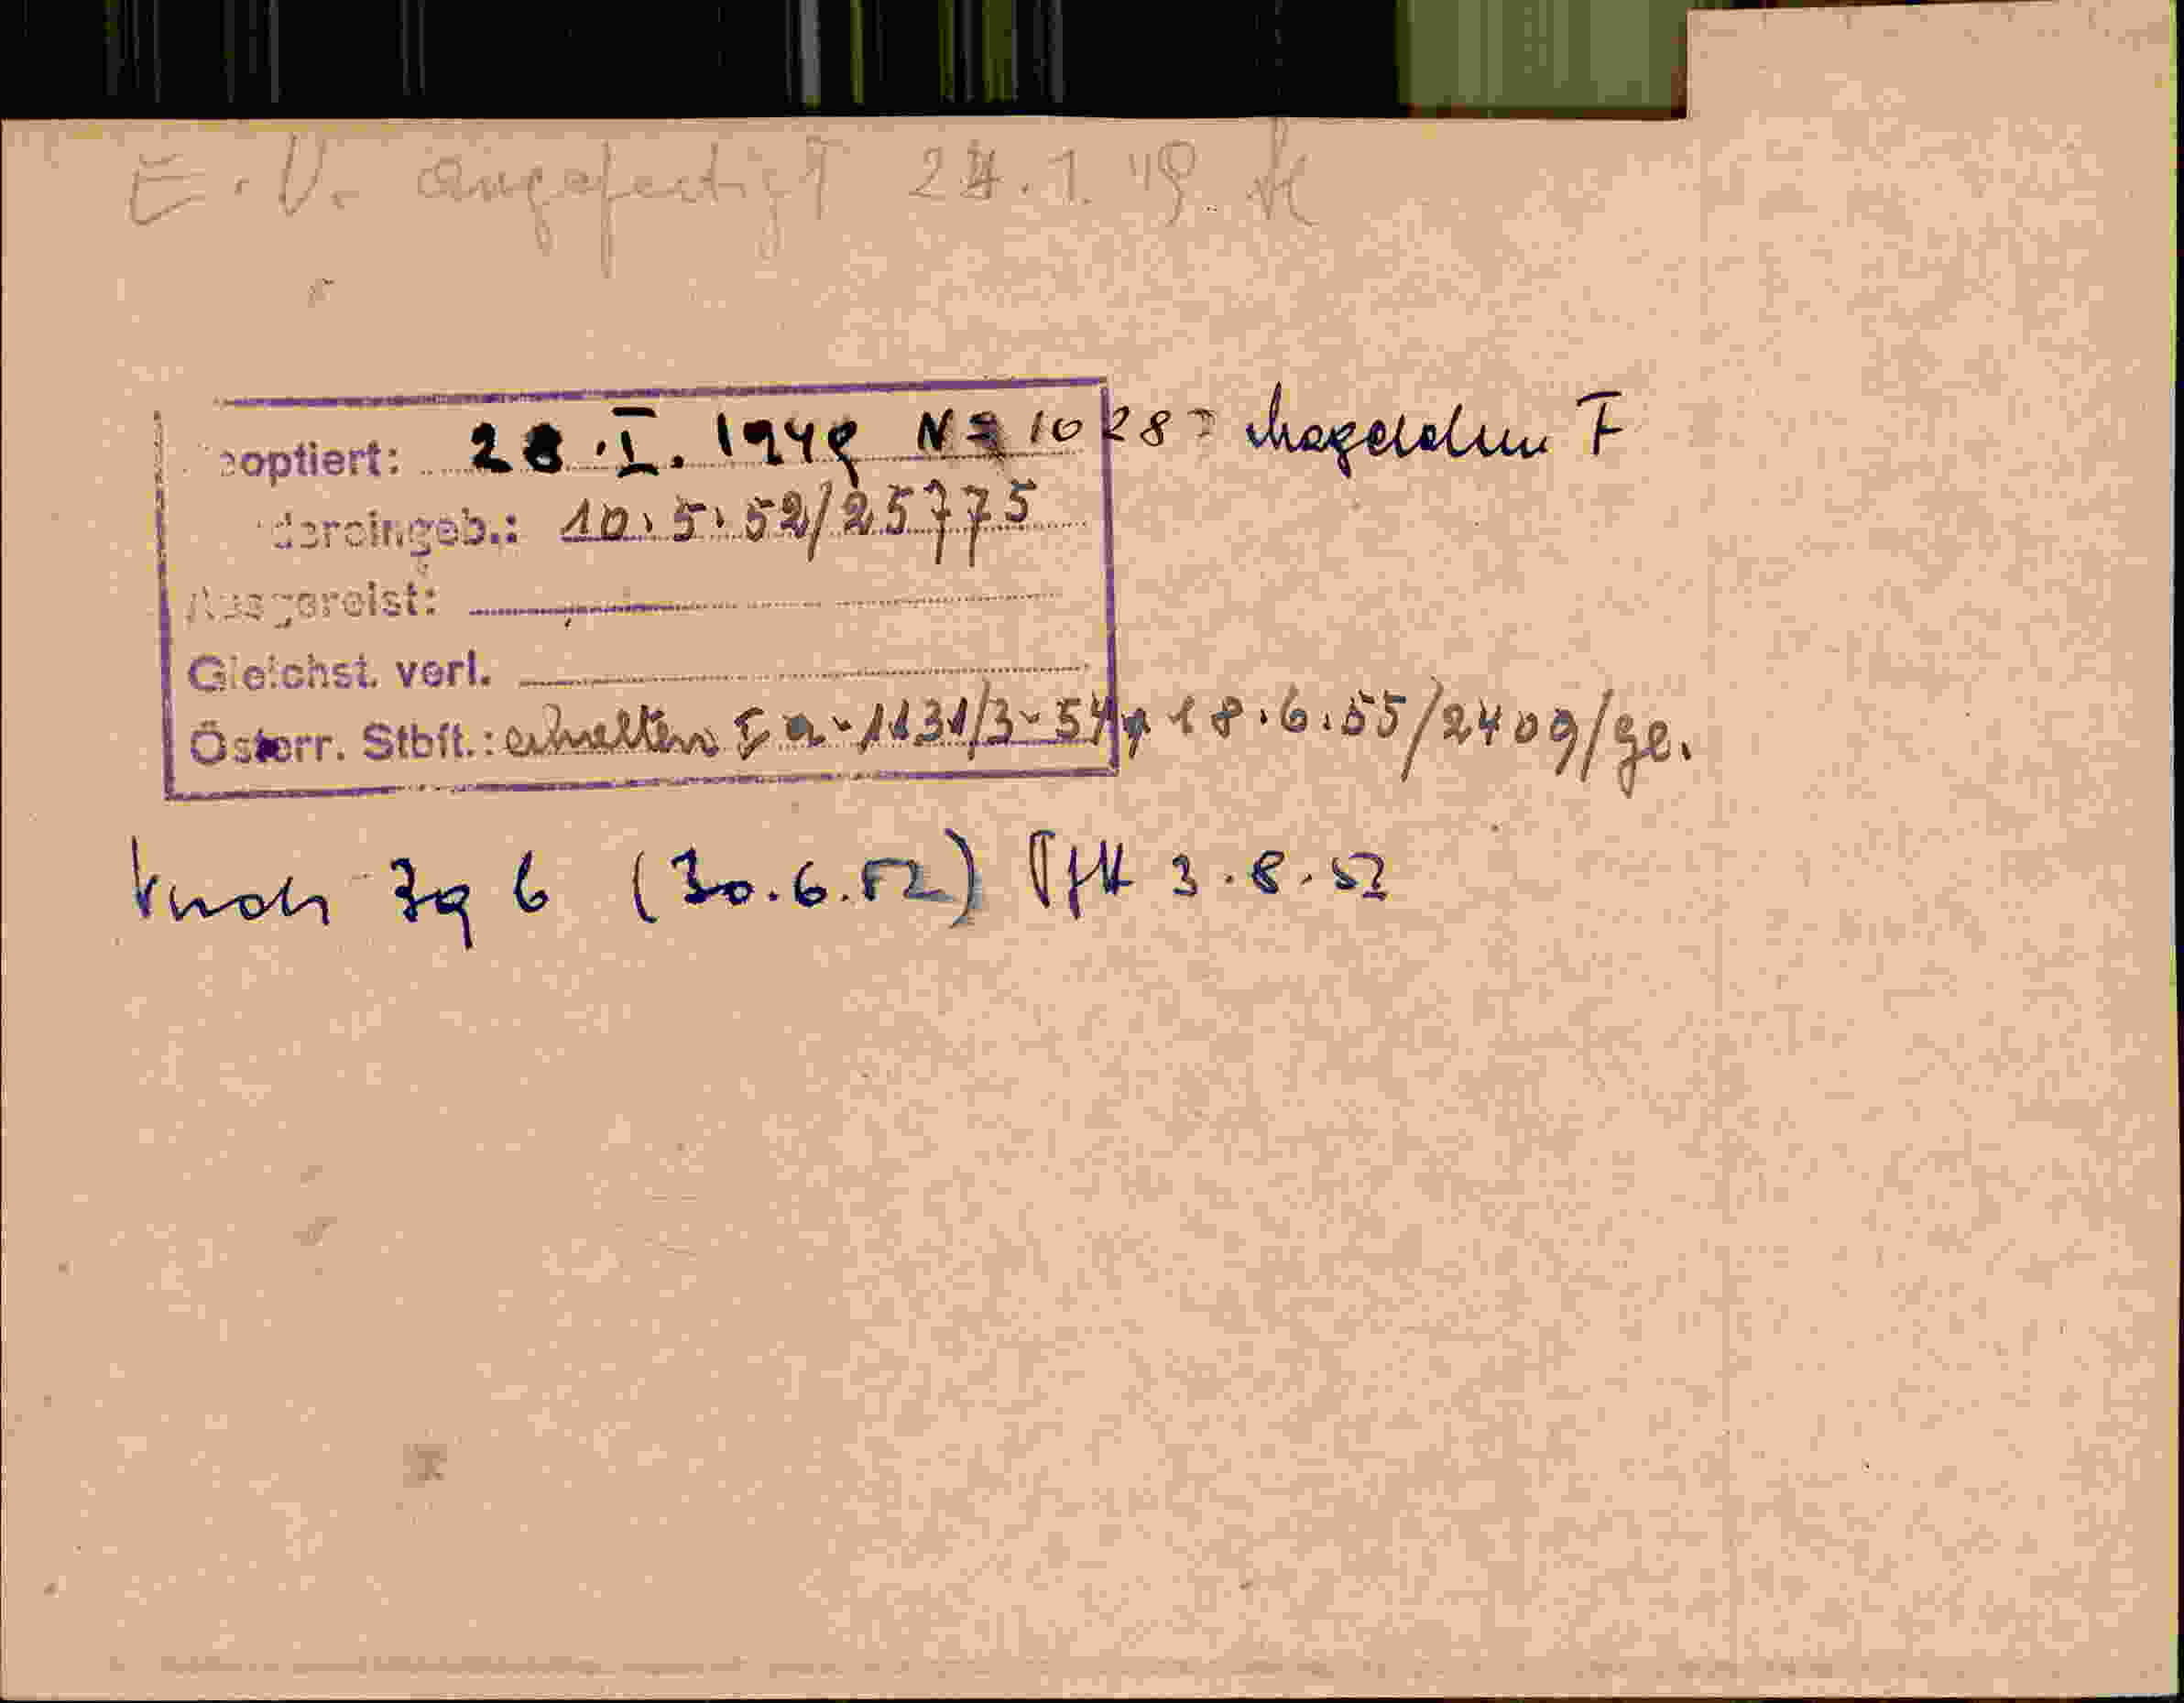 E. V. angefertigt 24.1.49.
optiert: 28.I.1949 No 1028
dereingeb.: 10.5.52/25775
Ausgereist:
Gleichst. verl.
Österr. Stbft.: erhalten I a-1131/3-54, 18.6.55/2409/ge.
(30.6.52) 3.8.52